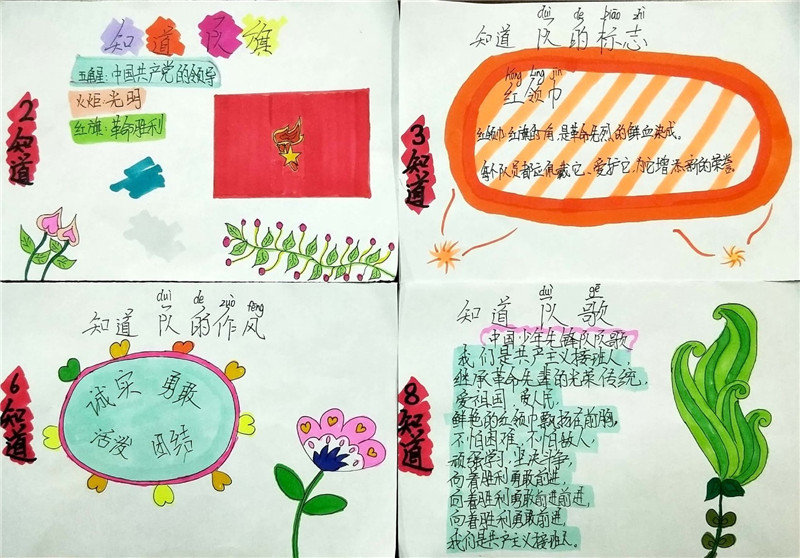 知道队旗
五角星:中国共产党的领导
火炬:光明
红旗:革命胜利
2知道
duì de biāo zhì
知道 队的标志
hóng lǐng jīn
红领巾
红领巾红旗的一角,是革命先烈的鲜血染成。
每个队员都应佩戴它、爱护它,为它增添新的荣誉。
3知道
duì de zuò fēng
知道 队的作风
诚实 勇敢
活泼 团结
6知道
duì gē
知道 队歌
中国少年先锋队队歌
我们是共产主义接班人,
继承革命先辈的光荣传统,
爱祖国,爱人民,
鲜艳的红领巾飘扬在前胸,
不怕困难,不怕敌人,
顽强学习,坚决斗争,
向着胜利勇敢前进,
向着胜利勇敢前进前进,
向着胜利勇敢前进,
我们是共产主义接班人。
8知道